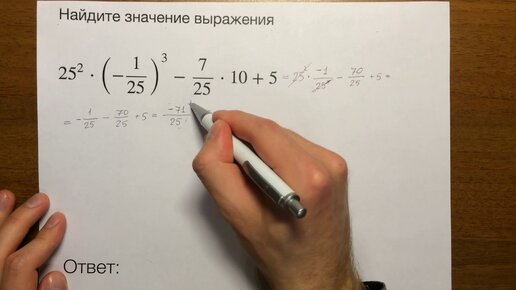 Найдите значение выражения
25² · (−1/25)³ − 7/25 · 10 + 5 = 25² · −1/25³ − 70/25 + 5 =
= −1/25 − 70/25 + 5 = −71/25
Ответ: